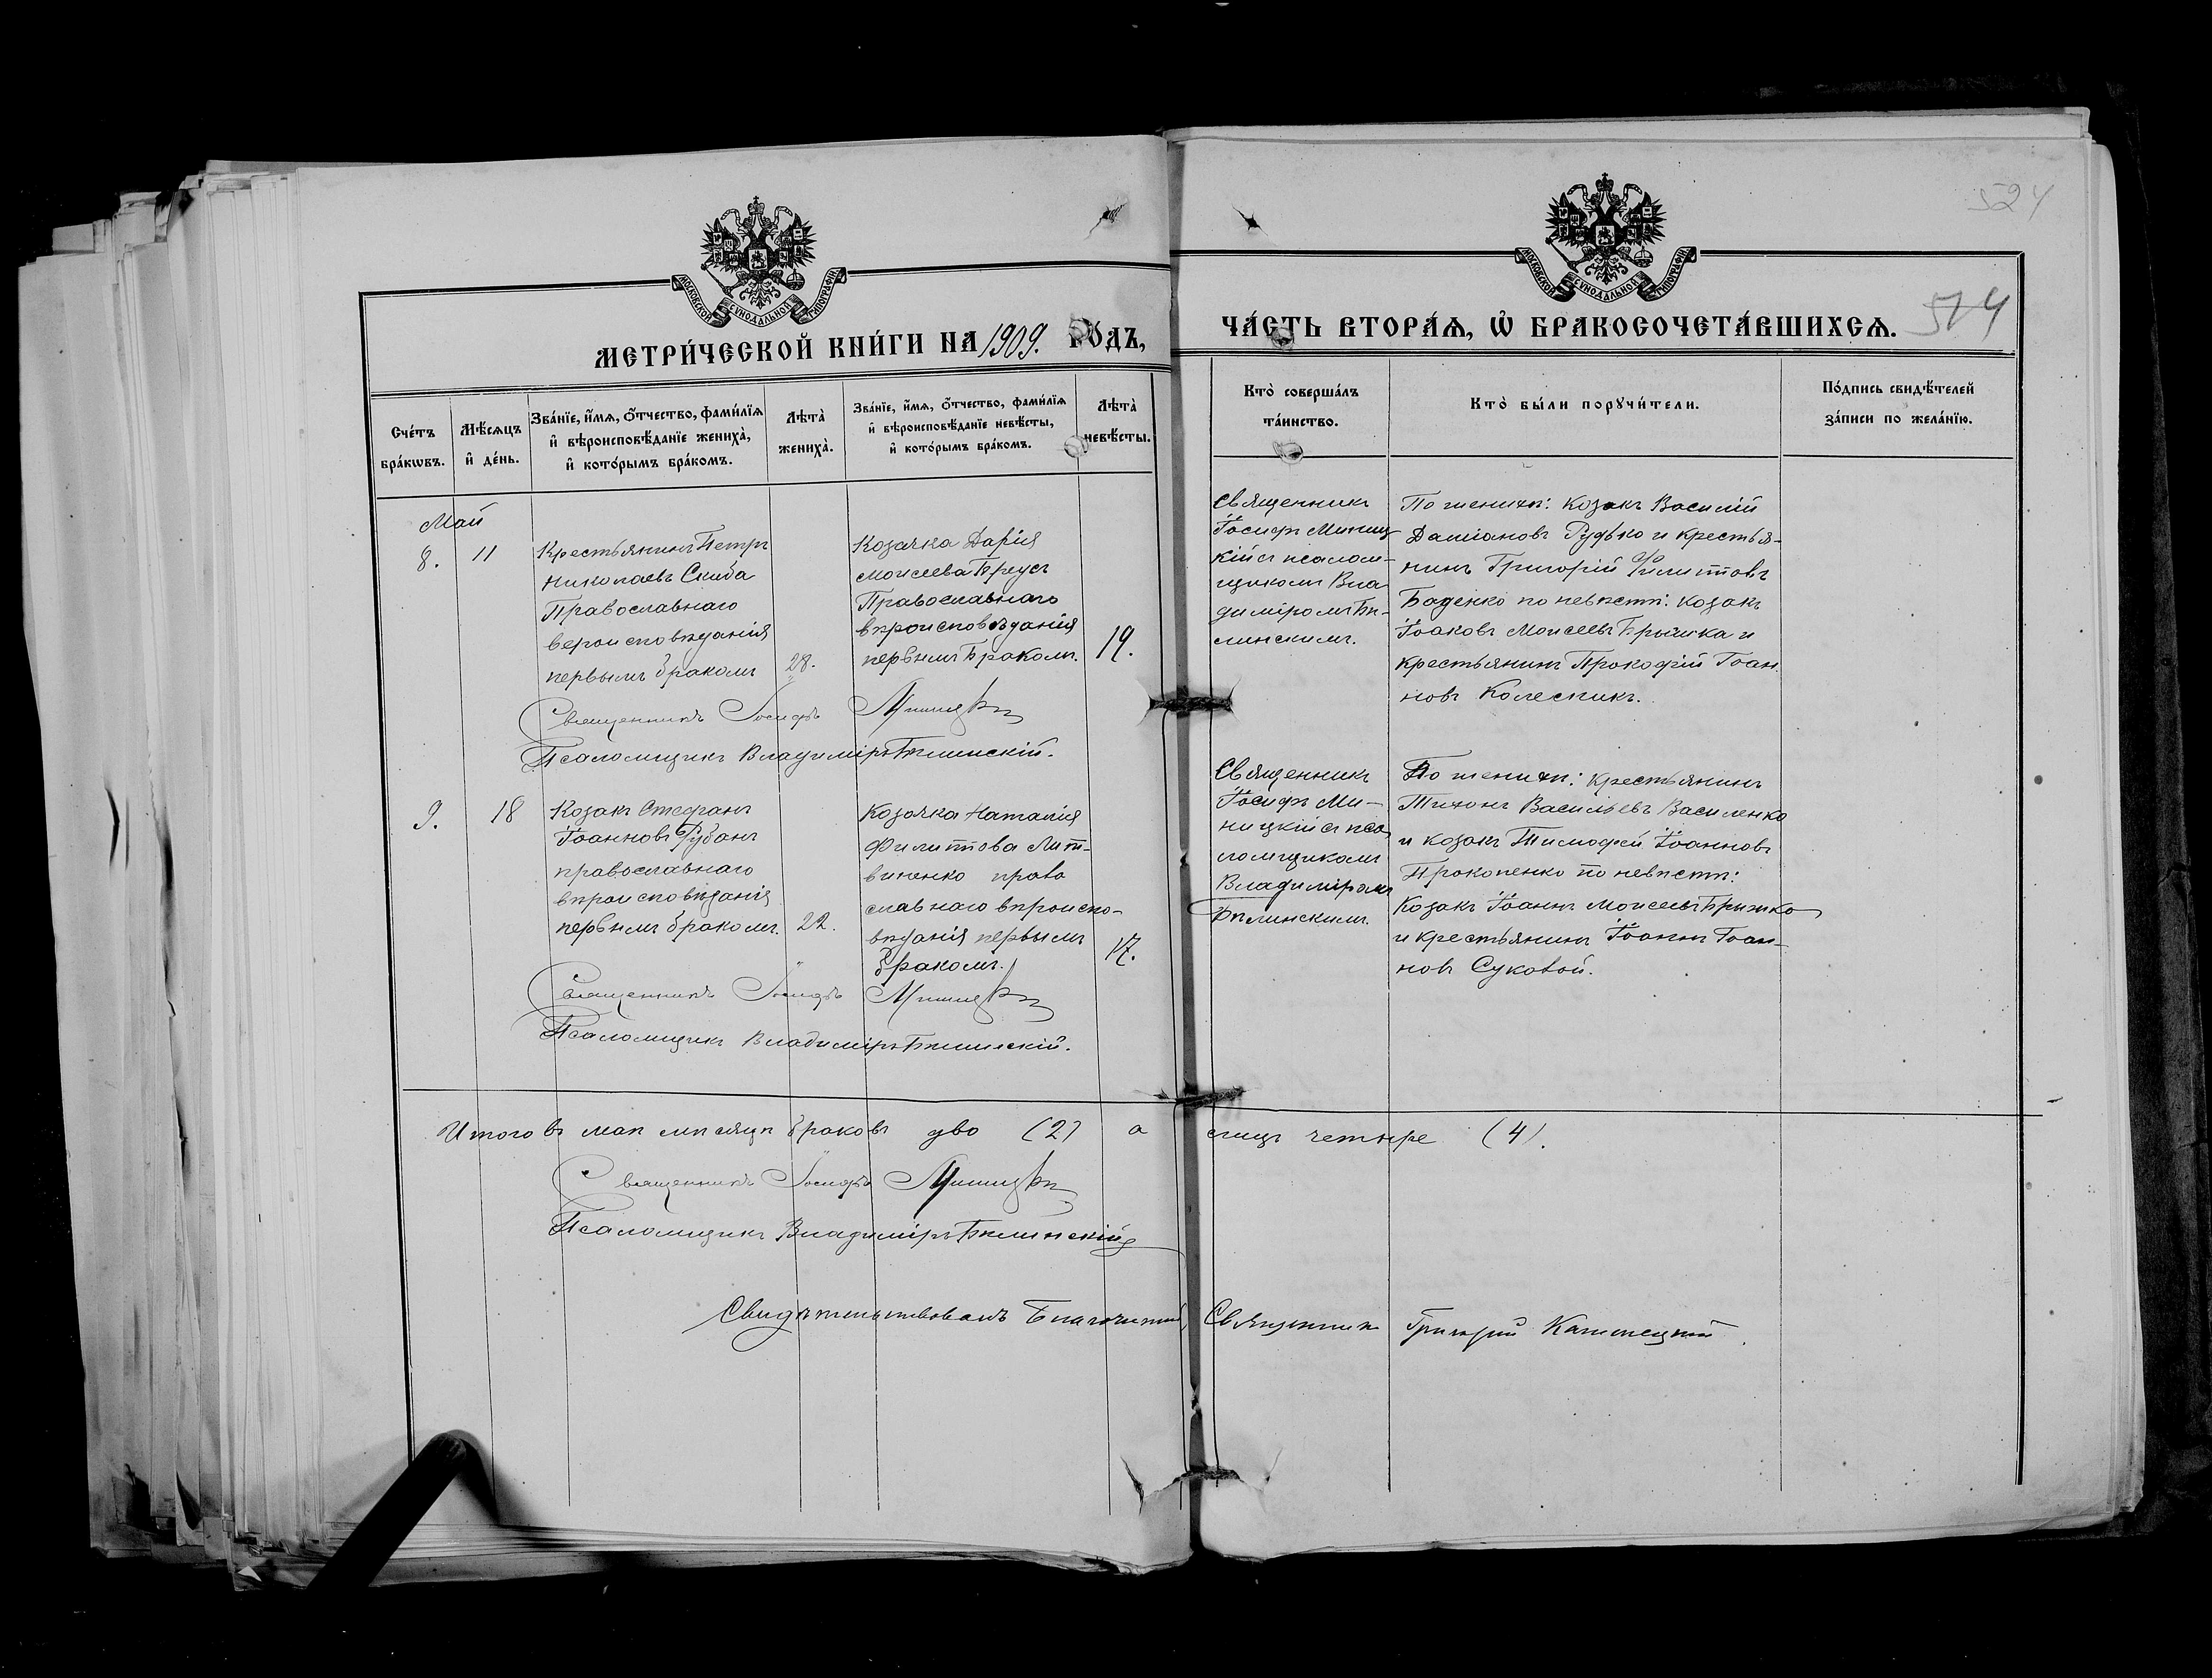 524
МОСКОВСКОЙ СУНОДАЛЬНОЙ ТИПОГРАФІИ
МОСКОВСКОЙ СУНОДАЛЬНОЙ ТИПОГРАФІИ
МЕТРИ́ЧЕСКОЙ КНИ́ГИ НА 1909. ГОДЪ,
ЧА́СТЬ ВТОРА́Ѧ, Ѽ БРАКОСОЧЕТА́ВШИХСѦ.
574
Сче́тъ
бра́кѡвъ.
Мѣ́сѧцъ
и҆ де́нь.
Зва́нїе, и҆́мѧ, ѻ҆́тчество, фами́лїѧ
и҆ вѣроисповѣ́данїе жениха̀,
и҆ кото́рымъ бра́комъ.
Лѣта̀
жениха̀.
Зва́нїе, и҆́мѧ, ѻ҆́тчество, фами́лїѧ
и҆ вѣроисповѣ́данїе невѣ́сты,
и҆ кото́рымъ бра́комъ.
Лѣта̀
невѣ́сты.
Кто̀ соверша́лъ
та́инство.
Кто̀ бы́ли порꙋчи́тели.
По́дпись свидѣ́телей
за́писи по жела́нїю.
Май
8.
11
Крестьянинъ Петръ
Николаевъ Скиба
Православнаго
вероисповѣданія
первымъ бракомъ
28.
Козачка Дарія
Моисеева Преусъ
Православнаго
вѣроисповѣданія
первымъ бракомъ.
19.
Священникъ
Іосифъ Миниц-
кій съ псалом-
щикомъ Вла
диміромъ Бѣ-
линскимъ.
По женихѣ: козакъ Василій
Даміановъ Рудько и крестья-
нинъ Григорій Филипповъ
Баденко по невѣстѣ: козакъ
Іоаковъ Моисеевъ Брышка и
крестьянинъ Прокофій Іоан
новъ Колесникъ.
Священникъ Іосифъ Миницкій
Псаломщикъ Владиміръ Бѣлинскій.
9.
18
Козакъ Стефанъ
Іоанновъ Рубанъ
православнаго
вѣроисповѣданія
первымъ бракомъ.
22.
Козачка Наталія
Филиппова Лит-
виненко право
славнаго вѣроиспо-
вѣданія первымъ
бракомъ.
17.
Священникъ
Іосифъ Ми-
ницкій съ пса
ломщикомъ
Владиміромъ
Бѣлинскимъ.
По женихѣ: крестьянинъ
Тихонъ Васильевъ Василенко
и козакъ Тимофей Іоанновъ
Прокопенко по невѣстѣ:
Козакъ Іоаннъ Моисеевъ Брышко
и крестьянинъ Іоаннъ Іоан-
новъ Суковой.
Священникъ Іосифъ Миницкій
Псаломщикъ Владиміръ Бѣлинскій.
Итого въ маѣ мѣсяцѣ браковъ два (2) а лицъ четыре (4).
Священникъ Іосифъ Миницкій
Псаломщикъ Владиміръ Бѣлинскій
Свидѣтельствовалъ Благочинный, Священникъ Григорій